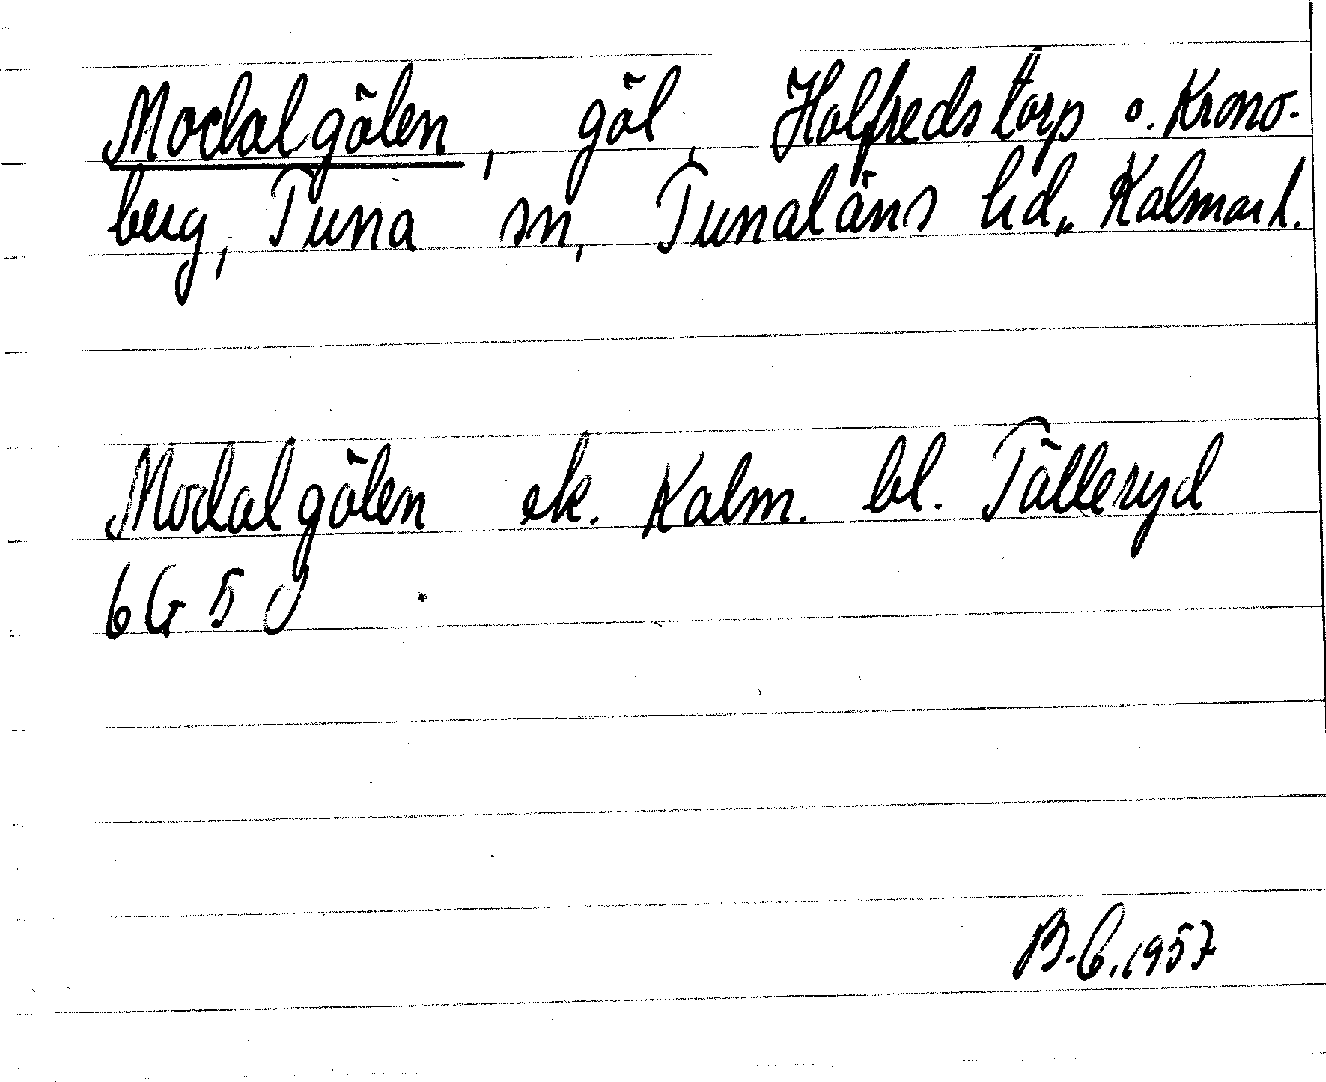 Modalgölen, göl, Holfredstorp o. Krono-
berg, Tuna sn, Tunaläns hd, Kalmar l.
Modalgölen ek. Kalm. bl. Tälleryd
6G 5 J
B.G. 1957